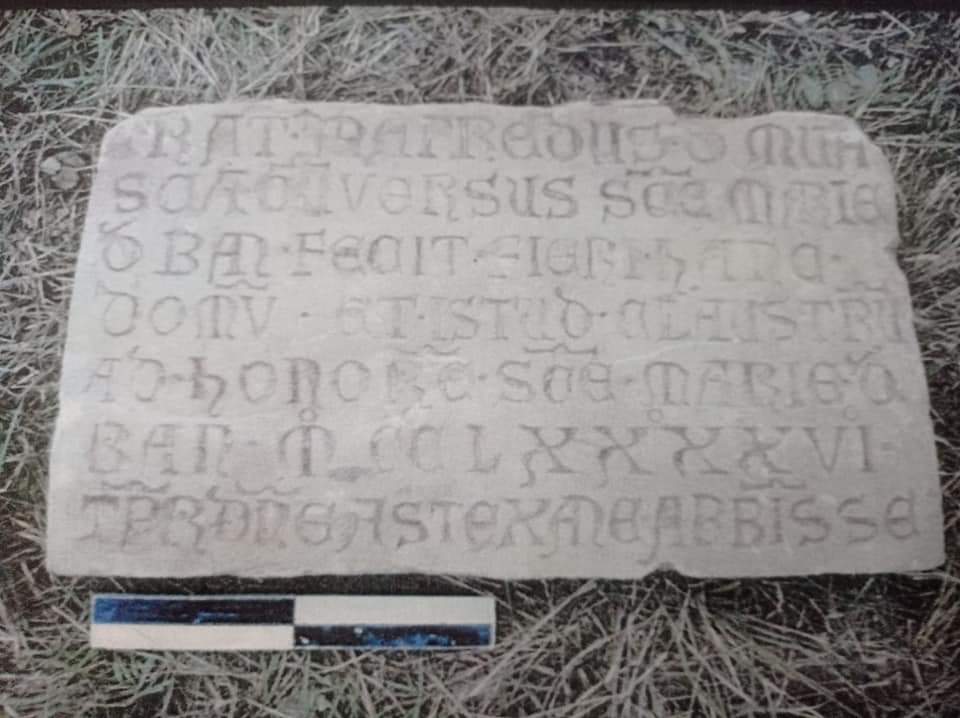 FRAT MAFREDUS D MUTI
SCAT CŌVERSUS SC̄E M̄RIE
D BAN · FECIT · FIERI · HANC ·
DOMV̄ · ET · ISTUD · CLAUSTRŪ
AD · HONORĒ · SC̄E · MARIE · D
BAN · M̊ CC L XXX̊X VI̊ ·
T̄PR D̄N̄E ASTEXANE ABBĪSSE